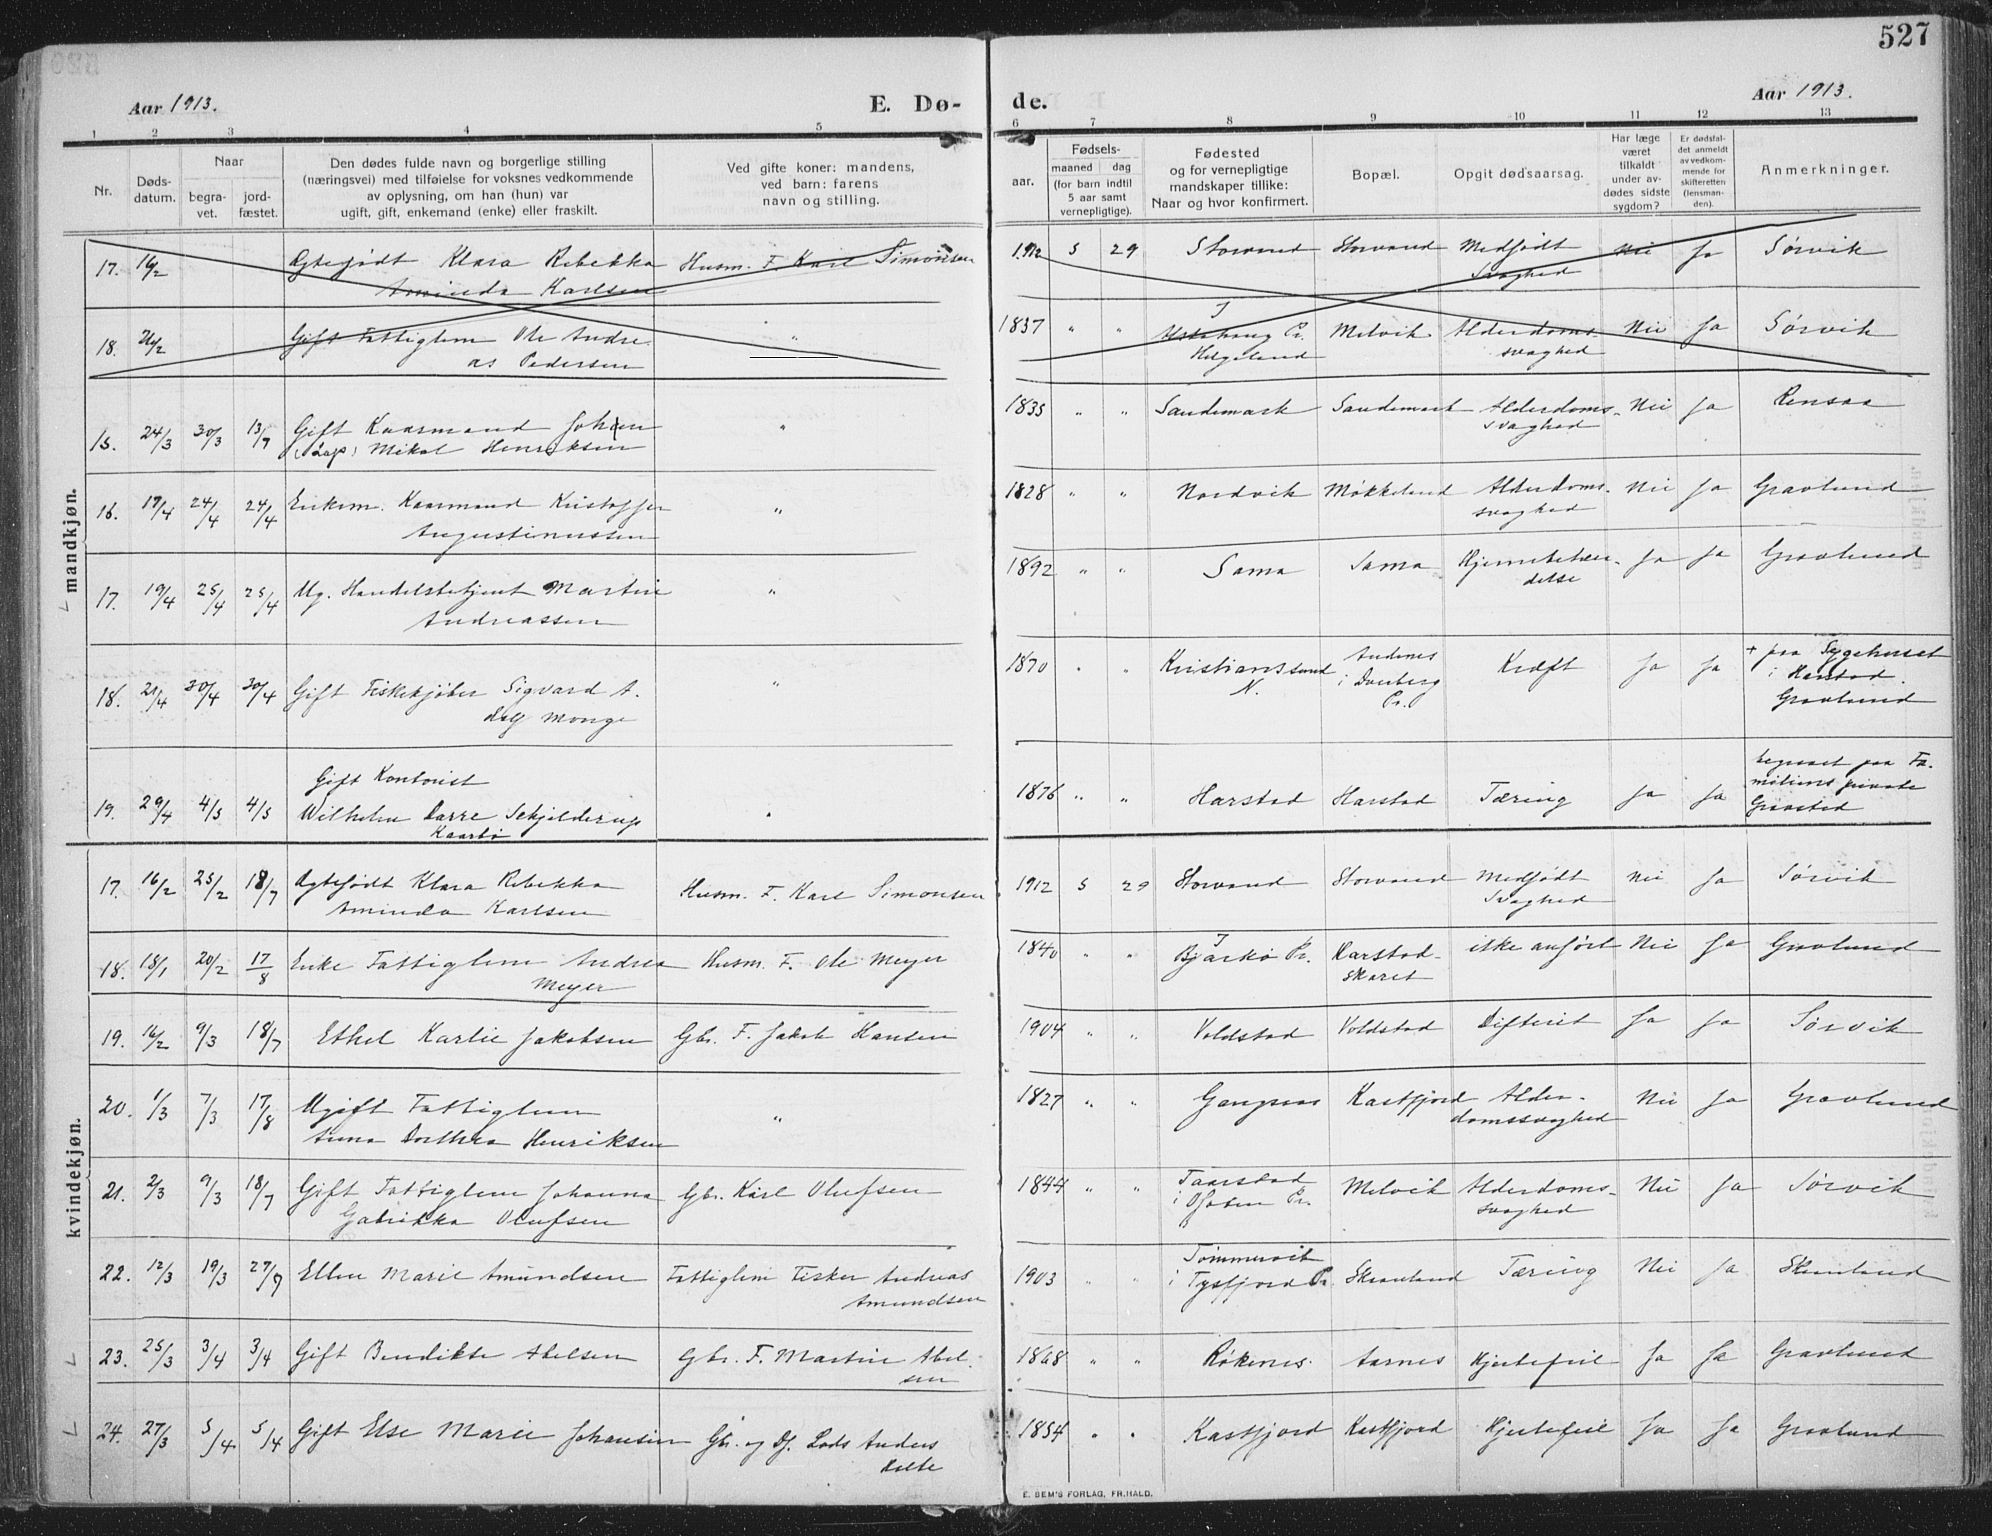 527
Aar 1913.
E. Dø-
de.
Aar 1913.
1 2 3 4 5 6 7 8 9 10 11 12 13
Nr.
Døds-
datum.
Naar
begra-
vet.
jord-
fæstet.
Den dødes fulde navn og borgerlige stilling
(næringsvei) med tilføielse for voksnes vedkommende
av oplysning, om han (hun) var
ugift, gift, enkemand (enke) eller fraskilt.
Ved gifte koner: mandens,
ved barn: farens
navn og stilling.
Fødsels-
aar.
maaned dag
(for barn indtil
5 aar samt
vernepligtige).
Fødested
og for vernepligtige
mandskaper tillike:
Naar og hvor konfirmert.
Bopæl.
Opgit dødsaarsag.
Har læge
været
tilkaldt
under av-
dødes sidste
sygdom?
Er dødsfal-
det anmeldt
av vedkom-
mende for
skifteretten
(lensman-
den).
Anmerkninger.
mandkjøn.
17. 16/2 Egtefødt Klara Rebekka Husm. F. Karl Simonsen 1912 5 29 Storvand Storvand Medfødt Nei Ja Sørvik
Aminda Karlsen svaghed
18. 26/2 Gift Fattiglem Ole Andre- " 1837 " " I Alstahaug Pr. Melvik Alderdoms- Nei Ja Sørvik
as Pedersen Helgeland svaghed
15. 24/3 30/3 13/7 Gift Kaarmand Johan " 1835 " " Sandemark Sandemark Alderdoms- Nei Ja Rensaa
(Lap) Mikal Henriksen svaghed
16. 17/4 24/4 24/4 Enkem. Kaarmand Kristoffer " 1828 " " Nordvik Møkkeland Alderdoms- Nei Ja Gravlund
Augustinussen svaghed
17. 19/4 25/4 25/4 Ug. Handelsbetjent Martin " 1892 " " Sama Sama Hjernebetæn- Ja Ja Gravlund
Andreassen delse
18. 21/4 30/4 30/4 Gift Fiskekjøber Sigvard A. " 1870 " " Kristianssund Andenes Kræft Ja Ja + paa Sygehuset
Monge N. i Dverberg i Harstad.
Pr. Gravlund
19. 29/4 4/5 4/5 Gift Kontorist " 1876 " " Harstad Harstad Tæring Ja Ja begravet paa Fa-
Wilhelm Darre Schjelderup miliens private
Kaarbø Gravsted
kvindekjøn.
17. 16/2 25/2 18/7 Egtefødt Klara Rebekka Husm. F. Karl Simonsen 1912 5 29 Storvand Storvand Medfødt Nei Ja Sørvik
Aminda Karlsen Svaghed
18. 18/1 20/2 17/8 Enke Fattiglem Andrea Husm. F. Ole Meyer 1840 " " I Bjarkø Pr. Harstad- ikke anført Nei Ja Gravlund
Meyer skaret
19. 16/2 9/3 18/7 Ethel Karlie Jakobsen Gbr. F. Jakob Hansen 1904 " " Voldstad Voldstad Difterit Ja Ja Sørvik
20. 1/3 7/3 17/8 Ugift Fattiglem " 1827 " " Gangsaas Kastfjord Alder- Nei Ja Gravlund
Anna Dorthea Henriksen domssvaghed
21. 2/3 9/3 18/7 Gift Fattiglem Johanna Gbr. Karl Olufsen 1844 " " Taarstad Melvik Alderdoms- Nei Ja Sørvik
Gabrikka Olufsen i Ofoten Pr. svaghed
22. 12/3 19/3 27/9 Ellen Marie Amundsen Fattiglem Fisker Andreas 1903 " " Tømmervik Skaanland Tæring Nei Ja Skaanland
Amundsen i Tysfjord Pr.
23. 25/3 3/4 3/4 Gift Bendikte Abelsen Gbr. F. Martin Abel- 1868 " " Røkenes Aarnes Hjertefeil Ja Ja Gravlund
sen
24. 27/3 5/4 5/4 Gift Else Marie Johansen Gbr. og Df. Lods Anders 1854 " " Kastfjord Kastfjord Hjertefeil Ja Ja Gravlund
E. SEM'S FORLAG, FR.HALD.